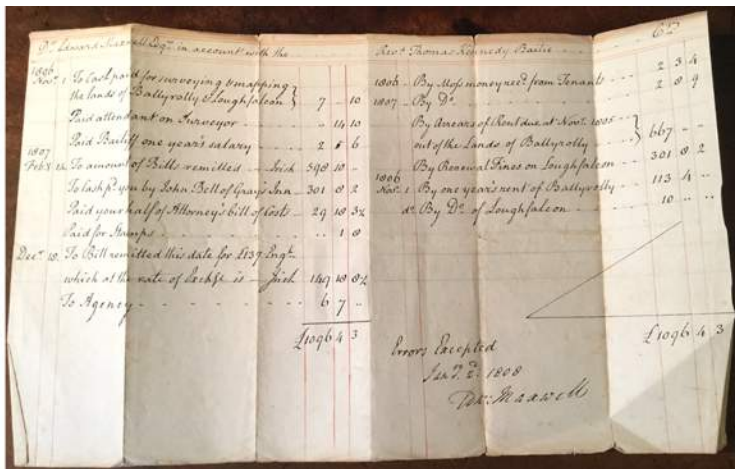 Dr. Edward Maxwell Esqr. in account with the
1806
Novr. 1 To Cash paid for surveying & mapping
the lands of Ballyrolly & Loughfalcon } 7 " 10
Paid attendant on Surveyor - - - .. 14 10
Paid Bailiff one year's salary - - 2 5 6
1807
Feby. 12 To amount of Bills remitted - Irish 598 10 -
To Cash pd. you by John Bell of Grays Inn - 301 8 2
Paid your half of Attorney's bill of Costs - 29 18 3½
Paid for Stamps - - - .. 1 8
Decr. 18. To Bill remitted this date for £137 Engh.
which at the rate of Exchge is - Irish 149 18 8½
To Agency - - - - 6 7 ..
£1096 4 3
Revd. Thomas Kennedy Bailie - - - CR
1806 - By Moss money recd. from Tenants - - 2 3 4
1807 - By Do. - - - 2 8 9
By Arrears of Rent due at Novr. 1805
out of the Lands of Ballyrolly - - } 667 - -
By Renewal Fines on Loughfalcon - - 301 8 2
1806
Novr. 1 By one year's rent of Ballyrolly - - 113 4 -
do. By Do. of Loughfalcon - - - 10 .. ..
£1096 4 3
Errors Excepted
Jany. 2d. 1808
Edw: Maxwell